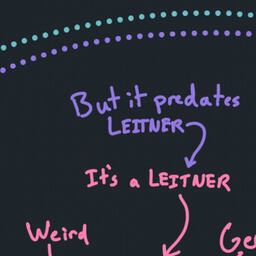 But it predates
LEITNER
It's a LEITNER
Weird
Ge